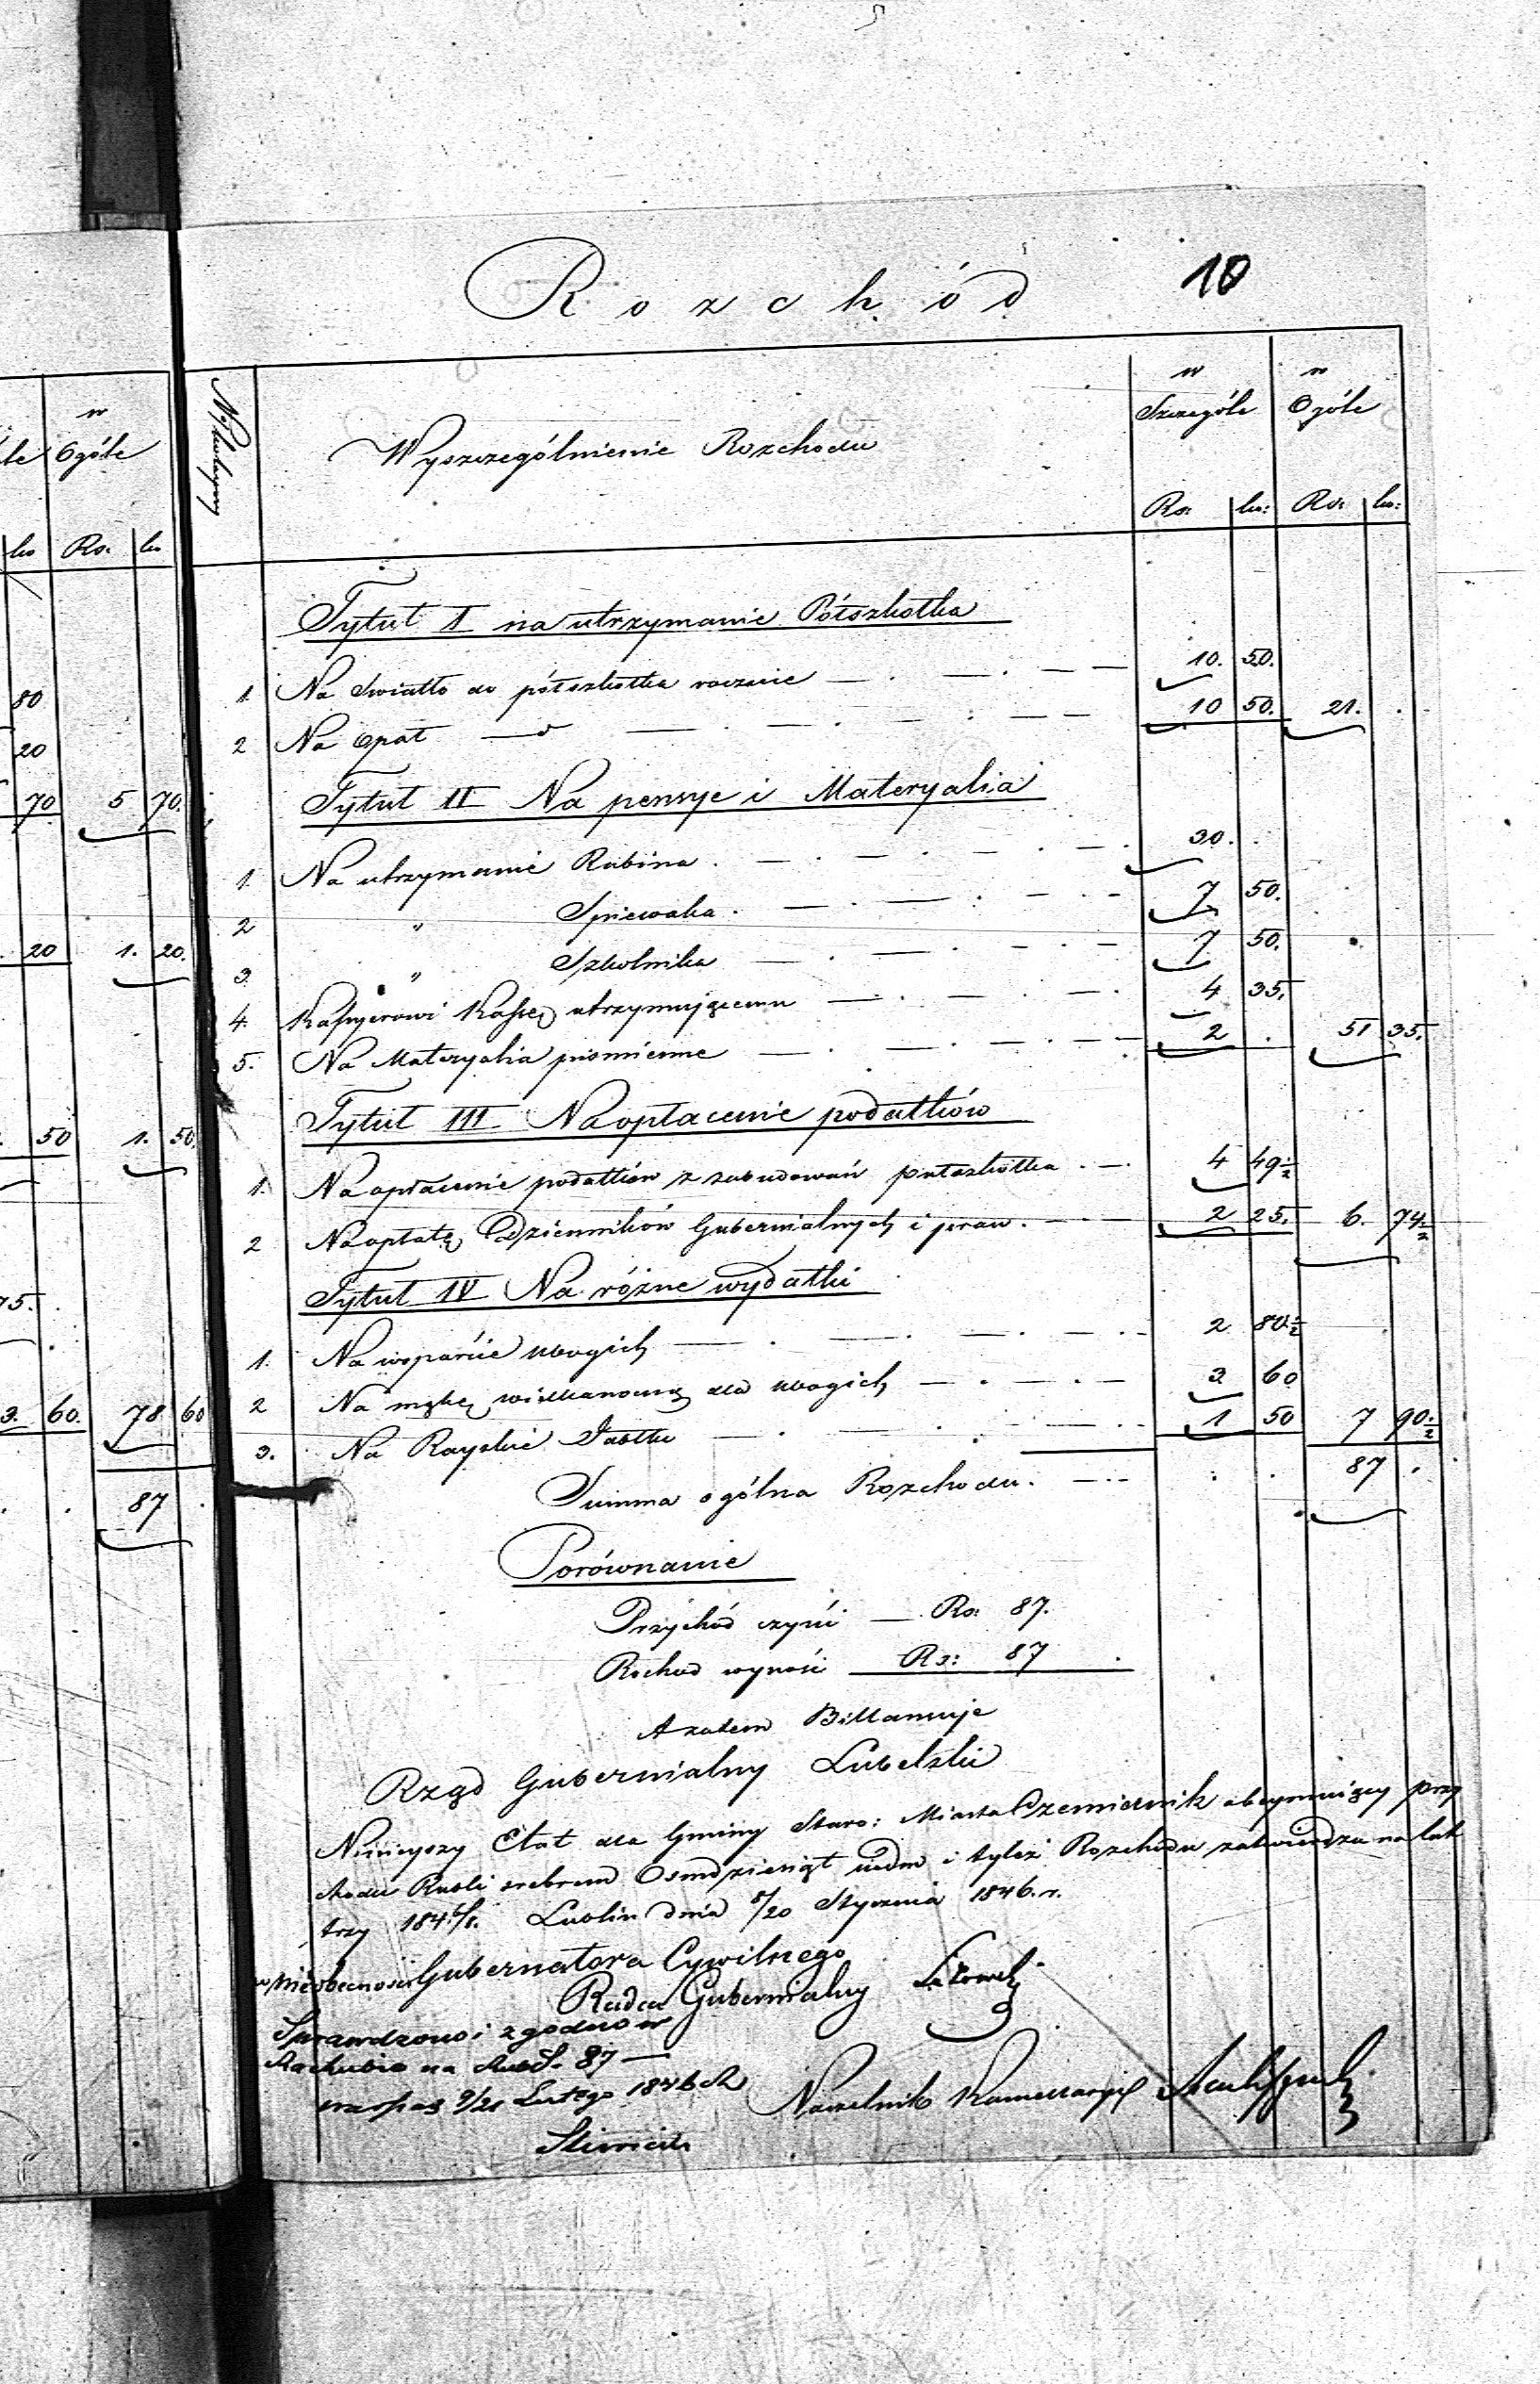 10
Rozchód
w Ogóle
Rs. ko
80
20
70 5 70.
20 1. 20.
50 1. 50.
75.
3. 60. 78 60
87
Wyszczególnienie Rozchodu
w Szczególe w Ogóle
Rs: ko: Rs: ko:
Tytuł I na utrzymanie Pótszkołka
1. Na Światło do pótszkołka rocznie 10. 50.
2 Na Opał 10 50. 21.
Tytuł II Na pensye i Materyalia
1. Na utrzymanie Rabina 30.
2 " Spiewaka 7 50.
3 " Szkolnika 7 50.
4. Kassyerowi Kassę utrzymującemu 4 35.
5. Na Materyalia pismienne 2 51 35.
Tytuł III Na opłacenie podatków
1. Na opłacenie podatków z zabudowań putszkołka 4 49½
2 Na opłatę Dzienników Gubernialnych i praw. 2 25. 6. 74½
Tytuł IV Na różne wydatki
1. Na wsparcie ubogich 2 80½
2 Na mąkę wielkanocną dla ubogich 3 60
3. Na Rayskie Jabłka 1 50 7 90½
Summa ogólna Rozchodu. 87
Porównanie
Przychód czyni Rs: 87.
Rochod wynosi Rs: 87
A zatem Billansuje
Rząd Gubernialny Lubelski
Ninieyszy Etat dla Gminy Staro: Miasta Czemiernik obeymuiący przy
chodu Rubli srebrem Osmdziesiąt siedm i tyleż Rozchodu zatwierdza na lat
trzy 1846/8. Lublin dnia 8/20 Stycznia 1846. r.
w nieobecności Gubernatora Cywilnego
Radca Gubernialny
Sprawdzono i zgodno w
Rachubie na RubS. 87 —
9/21 Lutego 1846 R
Naczelnik Kancellaryi